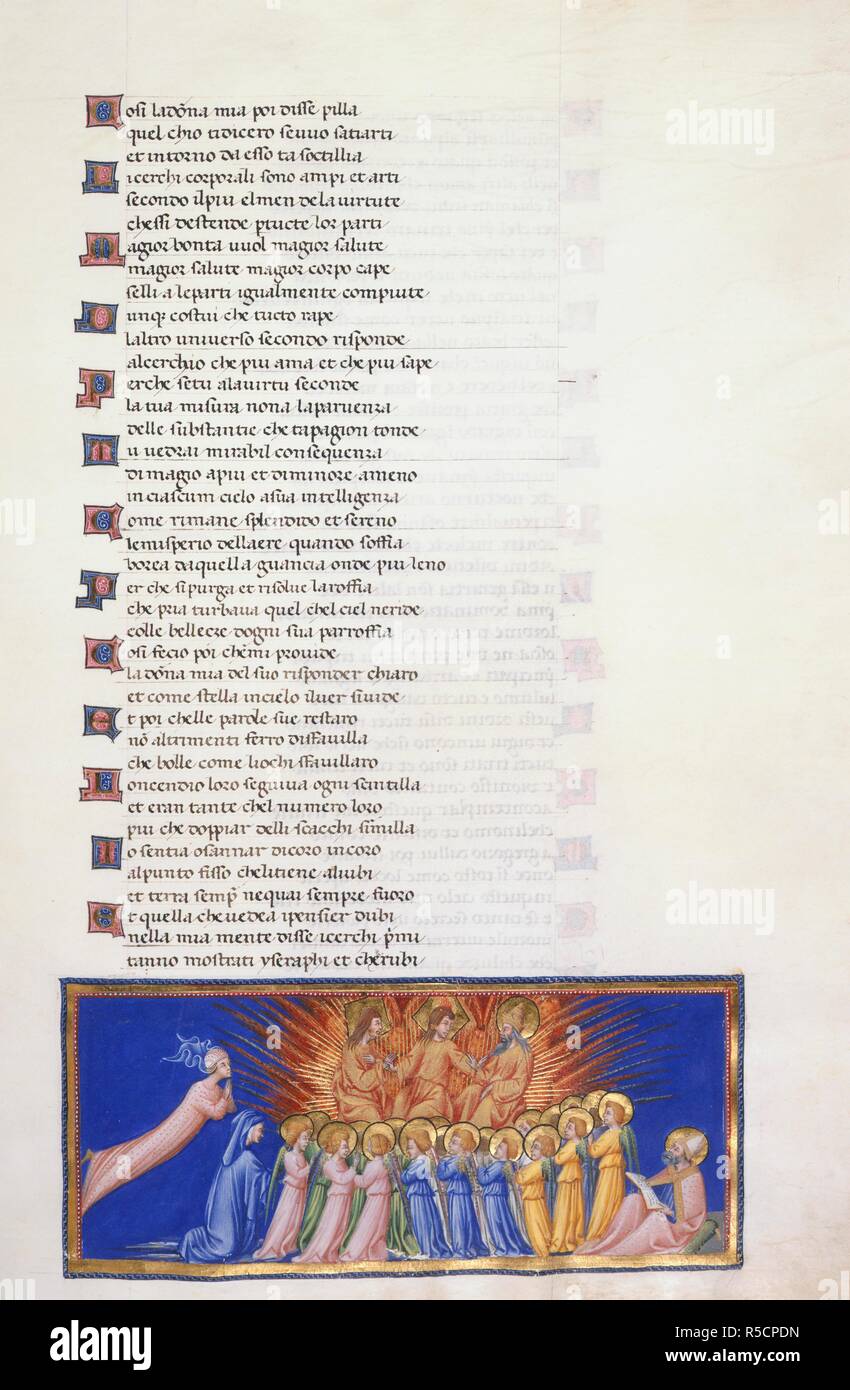 Cosi la dõna mia poi disse pilla
quel chio tidicero sevuo satiarti
et intorno da esso ta soctillia
Licerchi corporali sono ampi et arti
secondo ilpiu elmen dela virtute
chessi destende ptucte lor parti
Magior bonta vuol magior salute
magior salute magior corpo cape
selli a leparti igualmente compiute
Dunqȝ costui che tucto rape
laltro universo secondo risponde
alcerchio che piu ama et che piu sape
Perche setu ala virtu seconde
la tua misura nona la paruenza
delle substantie che tapagion tonde
Tu uedrai mirabil consequenza
di magio a piu et di minore ameno
in ciascum cielo a sua intelligenza
Come rimane splendido et sereno
lemisperio dellaere quando soffia
borea da quella guancia onde piu leno
Per che si purga et risolue la roffia
che pria turbaua quel chel ciel neride
colle bellecze dogni sua parroffia
Cosi fecio poi chemi prouide
la dõna mia del suo risponder chiaro
et come stella in cielo iluer siuide
Et poi chelle parole sue restaro
nõ altrimenti ferro disfauilla
che bolle come liochi sfauillaro
Loncendio loro seguiua ogni scintilla
et eran tante chel numero loro
piu che doppiar delli scacchi simmilla
Io sentia osannar di coro in coro
alpunto fisso chelitiene aliubi
et terra semp̃ nequai sempre fuoro
Et quella che uedea ipensier dubi
nella mia mente disse icerchi p̃mi
tanno mostrati yseraphi et cherubi
alamy
alamy
alamy
Image ID: R5CPDN
www.alamy.com